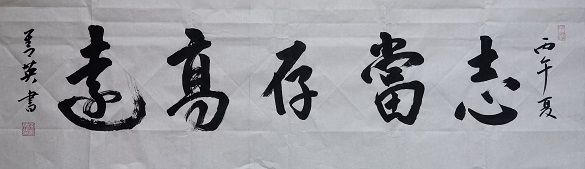 丙午夏
志當存高遠
菁英書